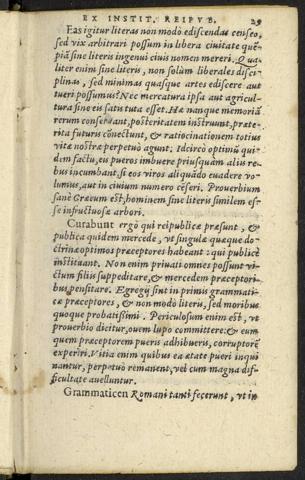 EX INSTIT. REIPVB. 29
Eas igitur literas non modò ediscendas censeo,
sed vix arbitrari possum in libera ciuitate quẽ-
piã sine literis ingenui ciuis nomen mereri. Qua-
liter enim sine literis, non solùm liberales disci-
plinas, sed minimas quasque artes ediscere aut
tueri possumus? Nec mercatura ipsa aut agricul-
tura sine eis satis tuta esset. Hæ nanque memoriã
rerum conseruant, posteritatem instruunt, præte-
rita futuris cõnectunt, & ratiocinationem totius
vitæ nostræ perpetuò agunt. Idcircò optimũ qui-
dem factu, eis pueros imbuere priusquàm aliis re-
bus incumbant, si eos viros aliquãdo euadere vo-
lumus, aut in ciuium numero cẽseri. Prouerbium
sanè Græcum est, hominem sine literis similem es-
se infructuosæ arbori.
Curabunt ergò qui reipublicæ præsunt, &
publica quidem mercede, vt singulæ quæque do-
ctrinæ optimos præceptores habeant: qui publicè
instituant. Non enim priuati omnes possunt vi-
ctum filiis suppeditare, & mercedem præceptori-
bus pensitare. Egregij sint in primis grammati-
cæ præceptores, & non modò literis, sed moribus
quoque probatissimi. Periculosum enim est, vt
prouerbio dicitur, ouem lupo committere: & eum
quem præceptorem pueris adhibueris, corruptorẽ
experiri. Vitia enim quibus ea ætate pueri inqui
nantur, perpetuò remanent, vel cum magna dif-
ficultate auelluntur.
Grammaticen Romani tanti fecerunt, vt in